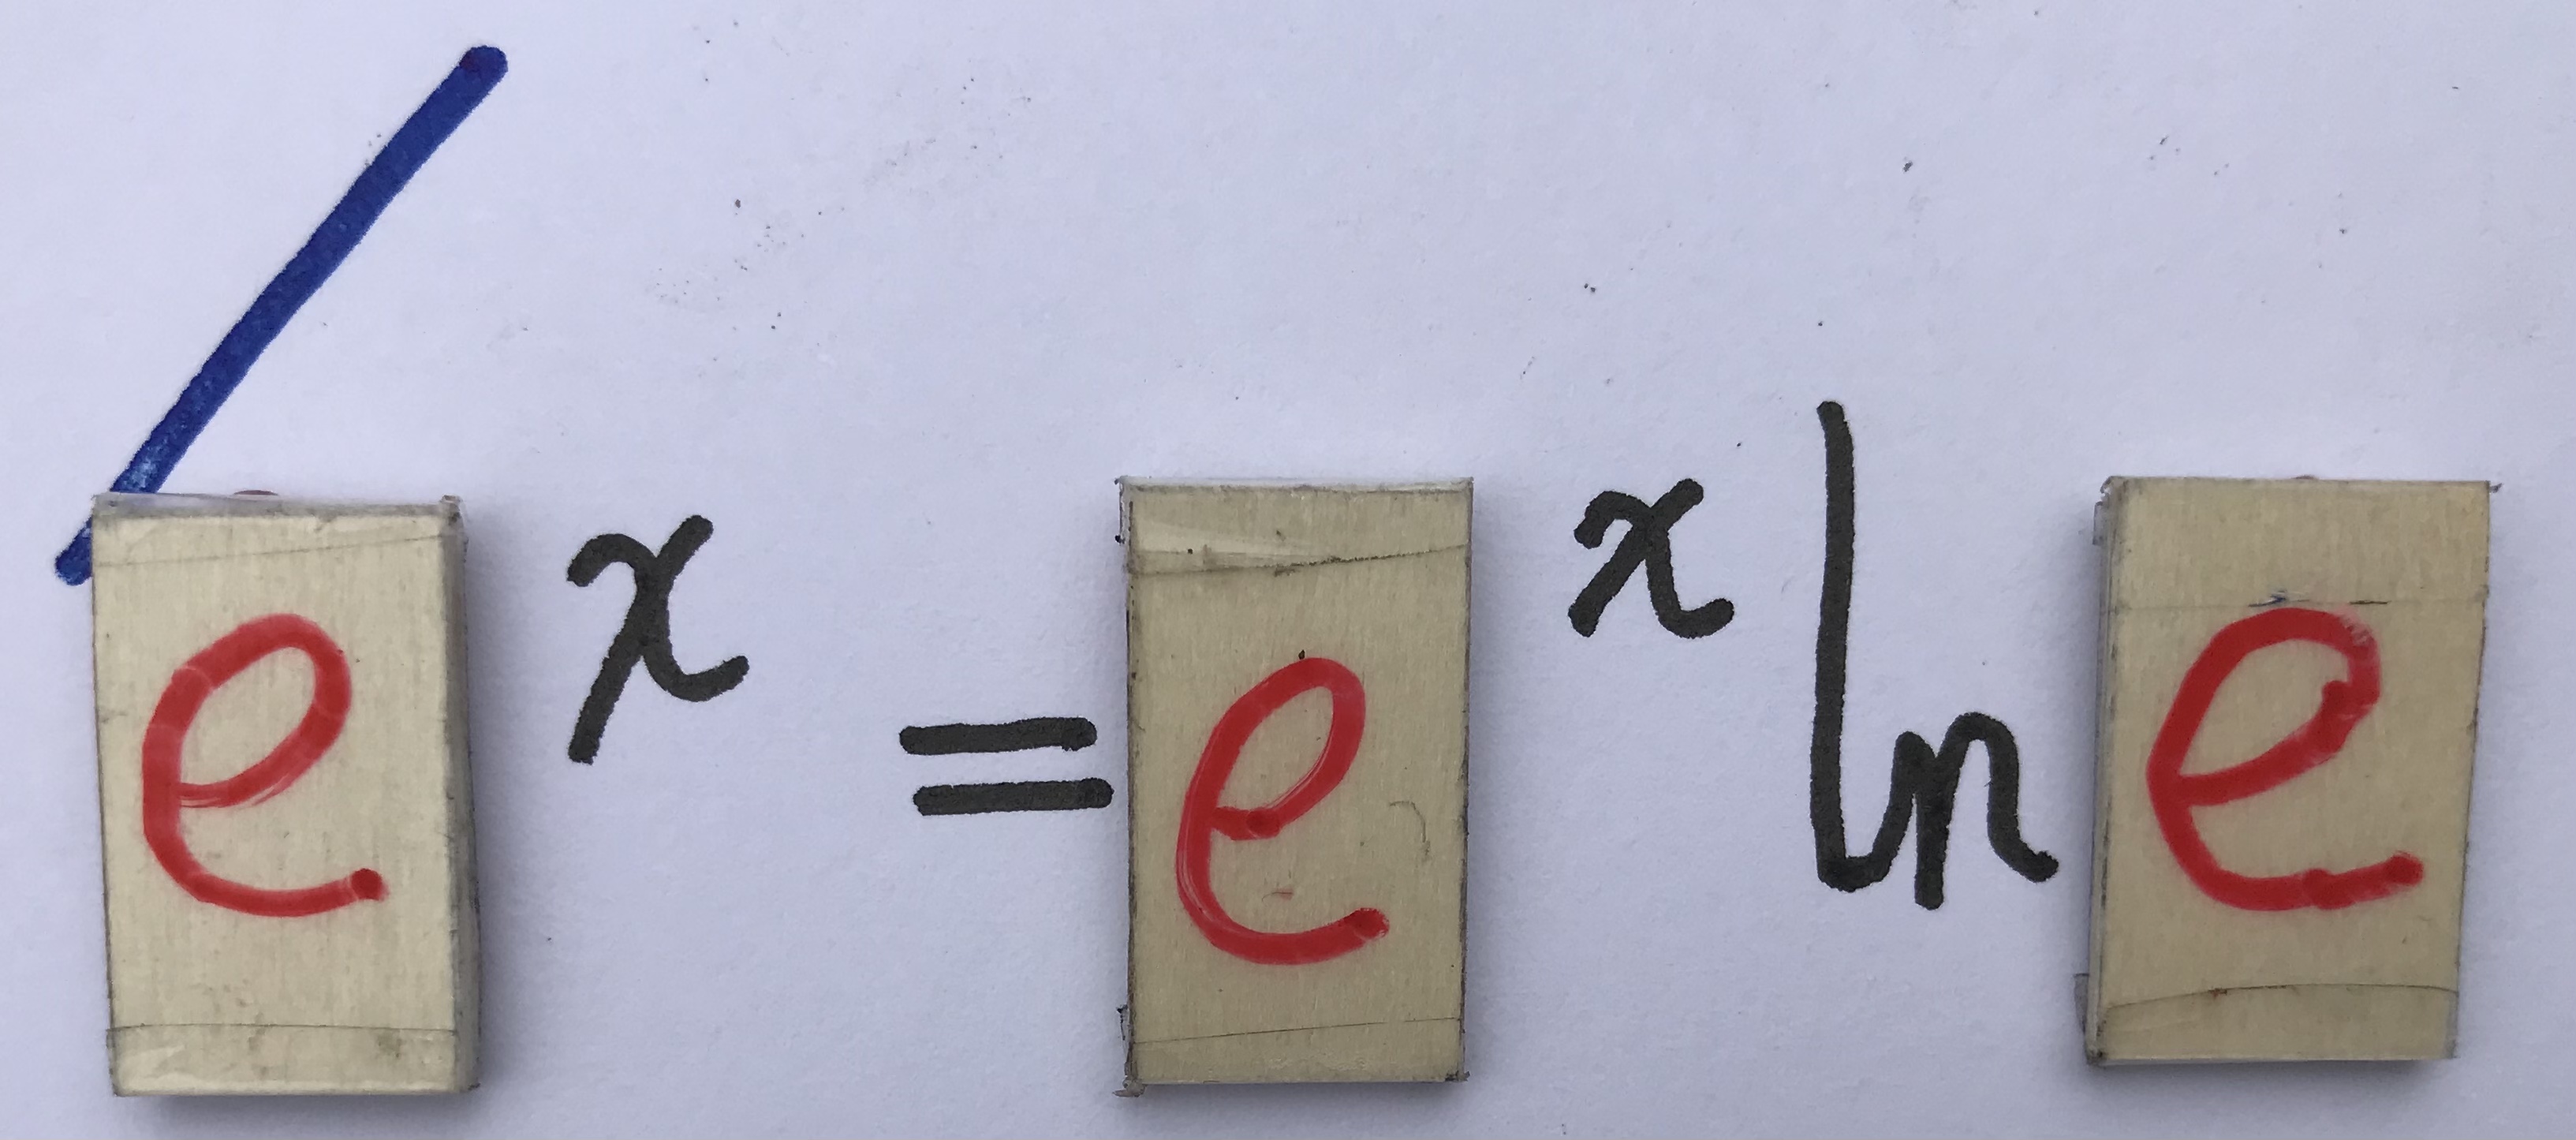 /e^x = e^x ln e